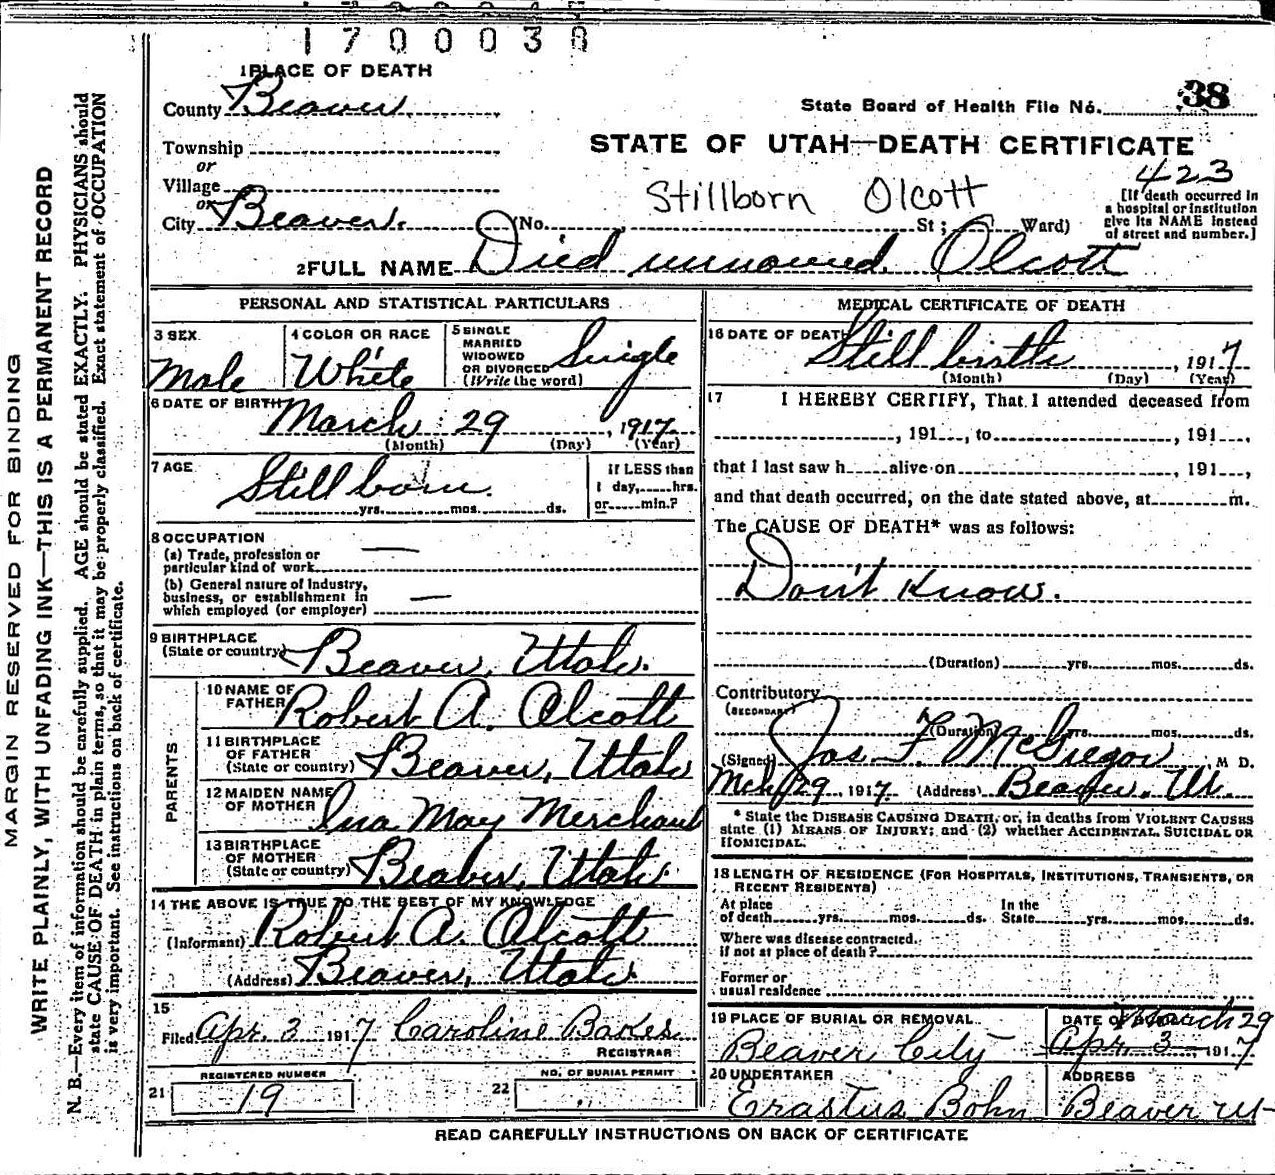 1700038
1 PLACE OF DEATH
County Beaver
State Board of Health File No. 38
Township
or
Village
or
City Beaver.
STATE OF UTAH—DEATH CERTIFICATE
423
Stillborn Olcott
(No. St; Ward)
[If death occurred in
a hospital or institution
give its NAME instead
of street and number.]
2 FULL NAME Died unnamed. Olcott
PERSONAL AND STATISTICAL PARTICULARS
3 SEX
Male
4 COLOR OR RACE
White
5 SINGLE
MARRIED
WIDOWED
OR DIVORCED
(Write the word)
Single
6 DATE OF BIRTH
March 29, 1917
(Month) (Day) (Year)
7 AGE
Still born.
yrs. mos. ds.
If LESS than
1 day, hrs.
or min.?
8 OCCUPATION
(a) Trade, profession or
particular kind of work —
(b) General nature of Industry,
business, or establishment in
which employed (or employer) —
9 BIRTHPLACE
(State or country) Beaver, Utah.
PARENTS
10 NAME OF
FATHER Robert A. Olcott
11 BIRTHPLACE
OF FATHER
(State or country) Beaver, Utah
12 MAIDEN NAME
OF MOTHER Ina May Merchant
13 BIRTHPLACE
OF MOTHER
(State or country) Beaver, Utah.
14 THE ABOVE IS TRUE TO THE BEST OF MY KNOWLEDGE
(Informant) Robert A. Olcott
(Address) Beaver, Utah.
15
Filed Apr. 3 1917 Caroline Bakes
REGISTRAR
REGISTERED NUMBER
21 19
NO. OF BURIAL PERMIT
22 "
MEDICAL CERTIFICATE OF DEATH
16 DATE OF DEATH
Still birth, 1917
(Month) (Day) (Year)
17 I HEREBY CERTIFY, That I attended deceased from
, 191 , to , 191 ,
that I last saw h alive on , 191 ,
and that death occurred, on the date stated above, at m.
The CAUSE OF DEATH* was as follows:
Don't Know.
(Duration) yrs. mos. ds.
Contributory
(SECONDARY)
(Duration) yrs. mos. ds.
(Signed) Jas F. McGregor, M D.
Mch 29, 1917 (Address) Beaver, Ut.
* State the DISEASE CAUSING DEATH, or, in deaths from VIOLENT CAUSES
state (1) MEANS OF INJURY; and (2) whether ACCIDENTAL, SUICIDAL OR
HOMICIDAL.
18 LENGTH OF RESIDENCE (FOR HOSPITALS, INSTITUTIONS, TRANSIENTS, OR
RECENT RESIDENTS)
At place
of death yrs. mos. ds.
In the
State yrs. mos. ds.
Where was disease contracted.
if not at place of death?
Former or
usual residence
19 PLACE OF BURIAL OR REMOVAL
Beaver City
DATE OF BURIAL
March 29
Apr. 3, 1917
20 UNDERTAKER
Erastus Bohn
ADDRESS
Beaver Ut
READ CAREFULLY INSTRUCTIONS ON BACK OF CERTIFICATE
MARGIN RESERVED FOR BINDING
WRITE PLAINLY, WITH UNFADING INK—THIS IS A PERMANENT RECORD
N. B.—Every item of information should be carefully supplied. AGE should be stated EXACTLY. PHYSICIANS should
state CAUSE OF DEATH in plain terms, so that it may be properly classified. Exact statement of OCCUPATION
is very important. See instructions on back of certificate.